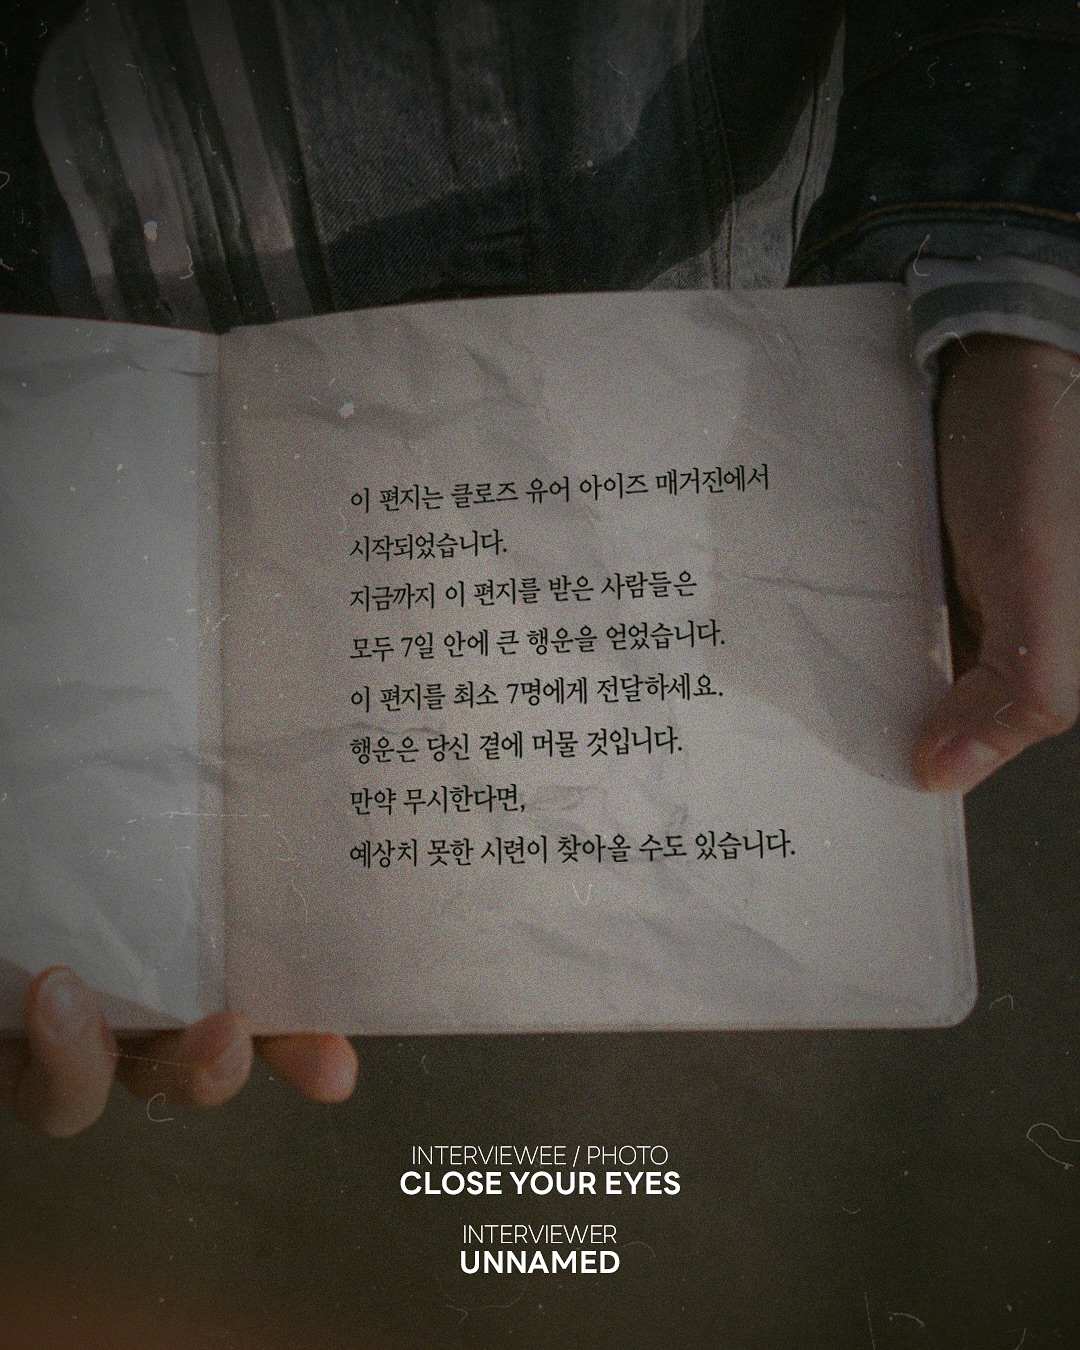 이 편지는 클로즈 유어 아이즈 매거진에서
시작되었습니다.
지금까지 이 편지를 받은 사람들은
모두 7일 안에 큰 행운을 얻었습니다.
이 편지를 최소 7명에게 전달하세요.
행운은 당신 곁에 머물 것입니다.
만약 무시한다면,
예상치 못한 시련이 찾아올 수도 있습니다.
INTERVIEWEE / PHOTO
CLOSE YOUR EYES
INTERVIEWER
UNNAMED